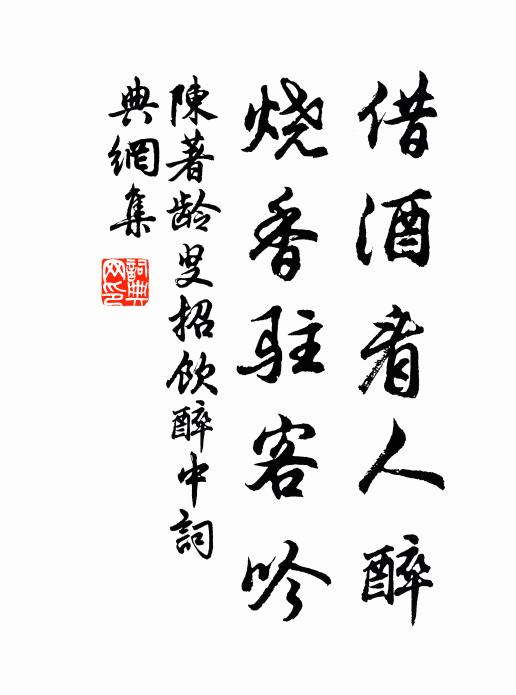 借酒看人醉
烧香驻客吟
陳著龄叟招飲醉中詞
典網集
詞典网印